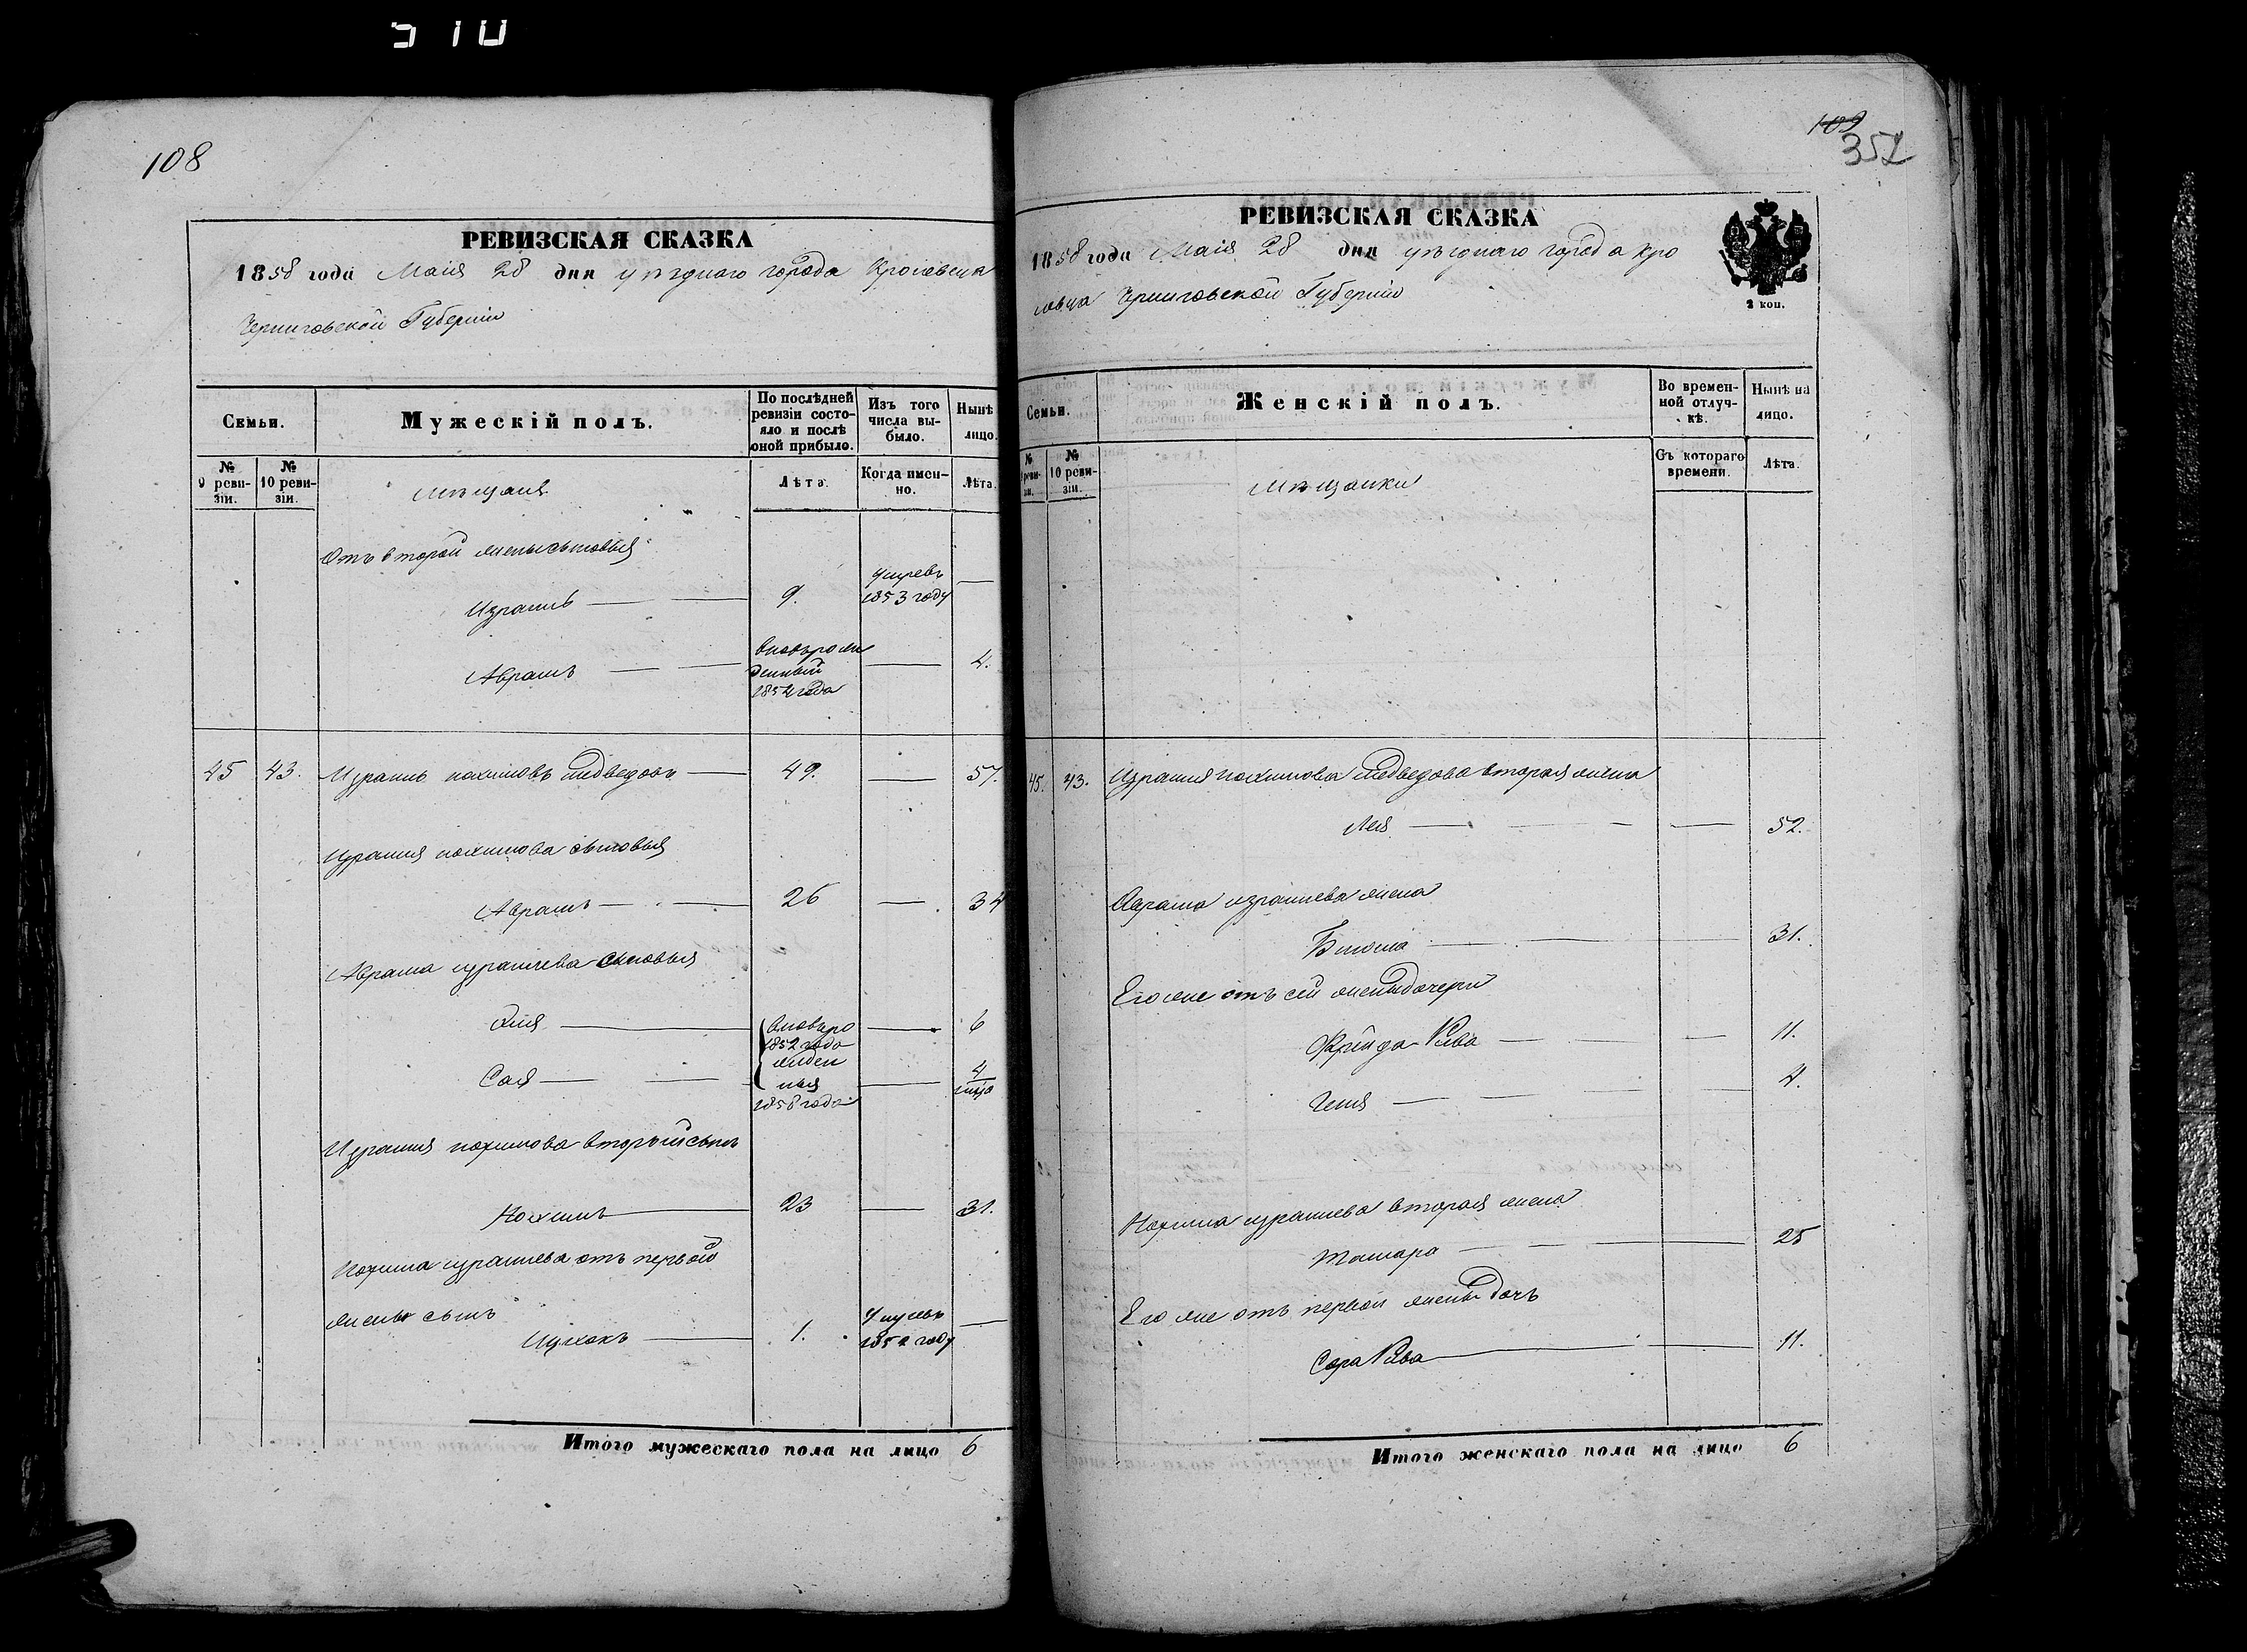 510
108
РЕВИЗСКАЯ СКАЗКА
1858 года Маія 28 дня уѣзднаго города Кролевца
Черниговской Губерніи
Семьи.
Мужескій полъ.
По послѣдней ревизіи состояло и послѣ оной прибыло.
Изъ того числа выбыло.
Нынѣ лицо.
№ 9 ревизіи.
№ 10 ревизіи.
Мѣщаня
Лѣта.
Когда именно.
Лѣта.
Отъ второй жены сыновья
Израиль 9. Умревъ 1853 году
Абрамъ вновьрожденный 1854 года 4.
45 43. Израиль нохимовъ медведовъ 49. 57.
Израиля нохимова сыновья
Абрамъ 26 34
Абрама израилева сыновья
вновьро 6
1852 года
жден
Сая ныя 4
1858 года
Израиля нохимова вторыйсынъ
Нохимъ 23 31.
Нохима израилева отъ первой
жены сынъ
Ицхокъ 1.
Итого мужескаго пола на лицо 6
109
352
РЕВИЗСКАЯ СКАЗКА
1858 года Маія 28 дня уѣзднаго города Кро
левца Черниговской Губерніи
2 коп.
Семьи.
Женскій полъ.
Во временной отлучкѣ.
Нынѣ на лицо.
№ 9 ревизіи.
№ 10 ревизіи.
Мѣщанки
Съ котораго времени.
Лѣта.
45. 43. Израиля нохимова медведова вторая жена
Лея 52.
Абрама израилева жена
31.
Его же отъ сей жены дочери
Фрейда Рива 11.
Геня 4.
Нохима израилева вторая жена
Тамара 25
Его же отъ первой жены дочь
Сора Рива 11.
Итого женскаго пола на лицо 6